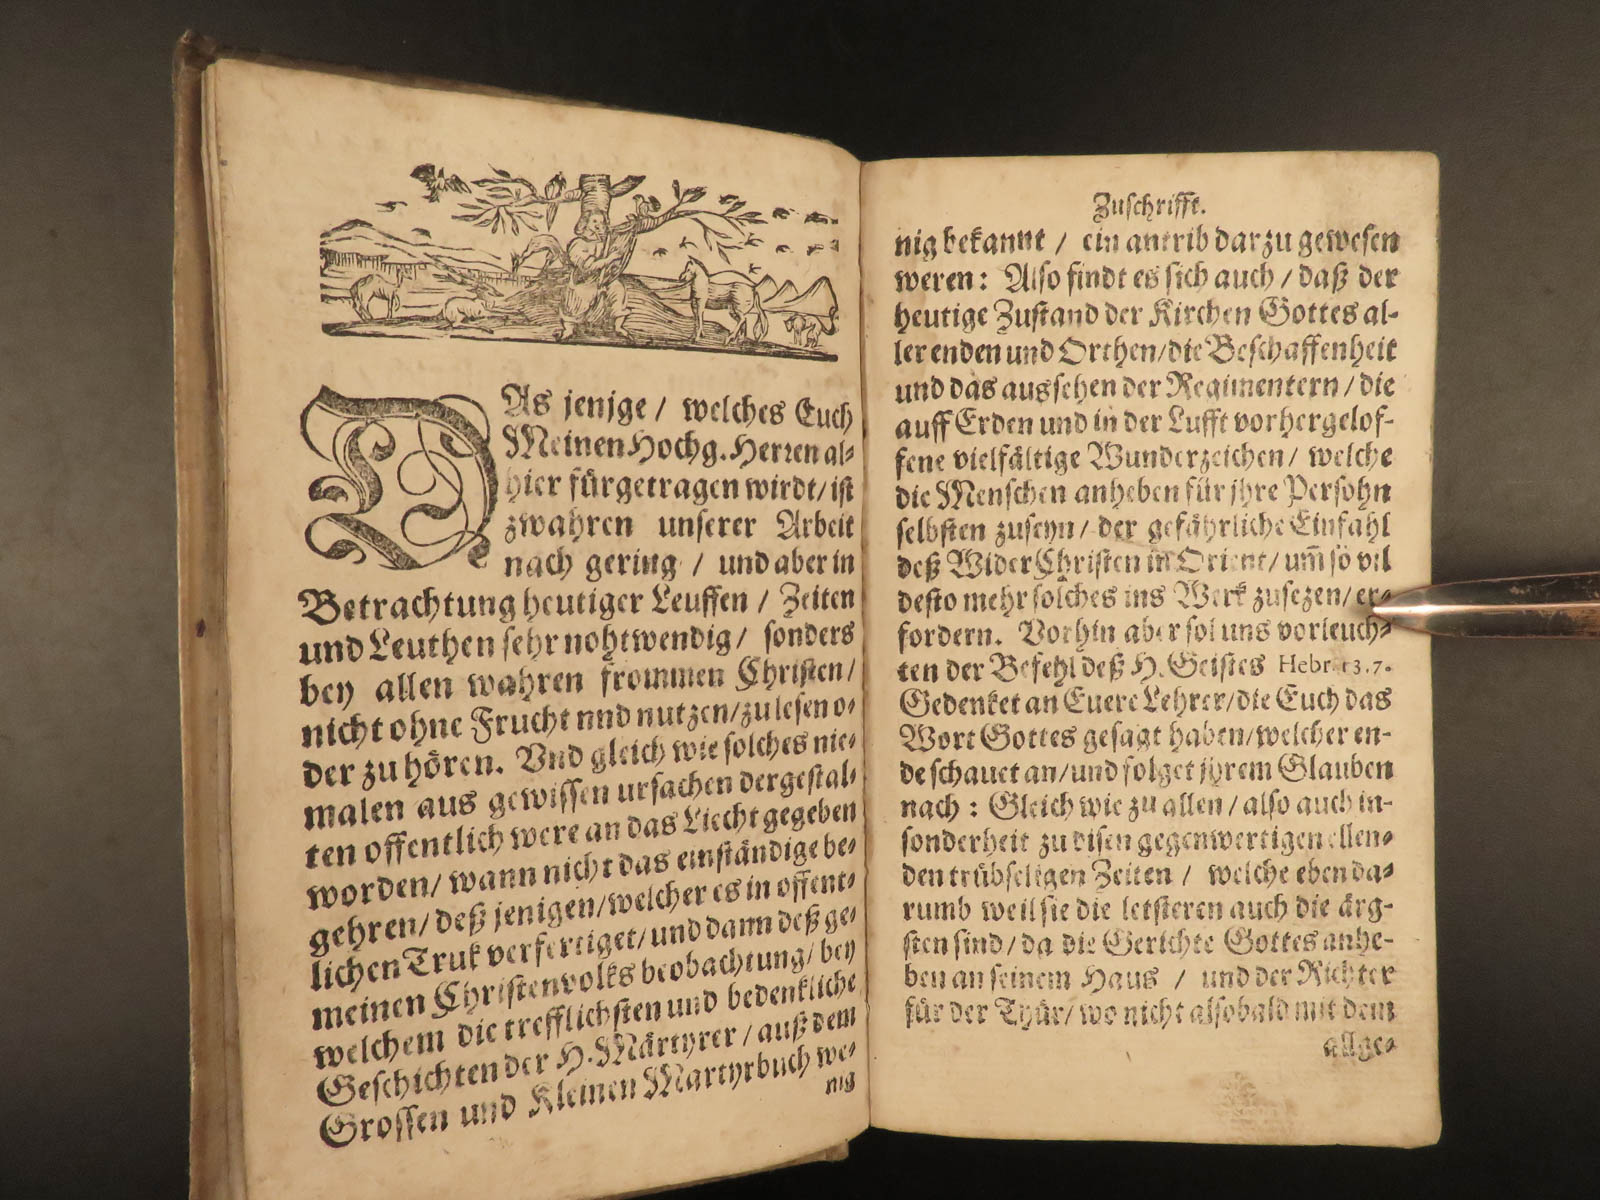 DAs jenige / welches Euch
Meinen Hochg. Herren al-
hier fürgetragen wirdt / ist
zwahren unserer Arbeit
nach gering / und aber in
Betrachtung heutiger Leuffen / Zeiten
und Leuthen sehr nohtwendig / sonders
bey allen wahren frommen Christen /
nicht ohne Frucht nnd nutzen / zu lesen o-
der zu hören. Vnd gleich wie solches nie-
malen aus gewissen ursachen dergestal-
ten offentlich were an das Liecht gegeben
worden / wann nicht das einständige be-
gehren / deß jenigen / welcher es in offent-
lichen Truk verfertiget / und dann deß ge-
meinen Christenvolks beobachtung / bey
welchem die trefflichsten und bedenkliche
Geschichten der H. Märtyrer / auß dem
Grossen und Kleinen Martyrbuch we-
nig
Zuschrifft.
nig bekannt / ein antrib darzu gewesen
weren: Also findt es sich auch / daß der
heutige Zustand der Kirchen Gottes al-
ler enden und Orthen / die Beschaffenheit
und das aussehen der Regimentern / die
auff Erden und in der Lufft vorhergelof-
fene vielfältige Wunderzeichen / welche
die Menschen anheben für jhre Persohn
selbsten zuseyn / der gefährliche Einfahl
deß WiderChristen in Orient / um̃ so vil
desto mehr solches ins Werk zusezen / er-
fordern. Vorhin aber sol uns vorleuch-
ten der Befehl deß H. Geistes Hebr. 13. 7.
Gedenket an Euere Lehrer / die Euch das
Wort Gottes gesagt haben / welcher en-
de schauet an / und folget jhrem Glauben
nach: Gleich wie zu allen / also auch in-
sonderheit zu disen gegenwertigen ellen-
den trübseligen Zeiten / welche eben da-
rumb weil sie die letsteren auch die ärg-
sten sind / da die Gerichte Gottes anhe-
ben an seinem Haus / und der Richter
für der Thür / wo nicht alsobald mit dem
allge-